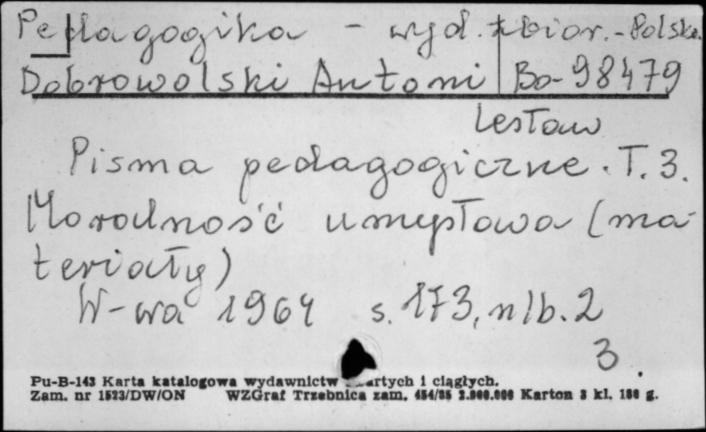 Pedagogika - wyd. zbior. - Polska.
Dobrowolski Antoni Bo-98479
Lesław
Pisma pedagogiczne. T. 3.
Moralność umysłowa (ma-
teriały)
W-wa 1964 s. 173, nlb. 2
3.
Pu-B-143 Karta katalogowa wydawnictw artych i ciągłych.
Zam. nr 1523/DW/ON WZGraf Trzebnica zam. 454/85 2.000.000 Karton 3 kl. 180 g.